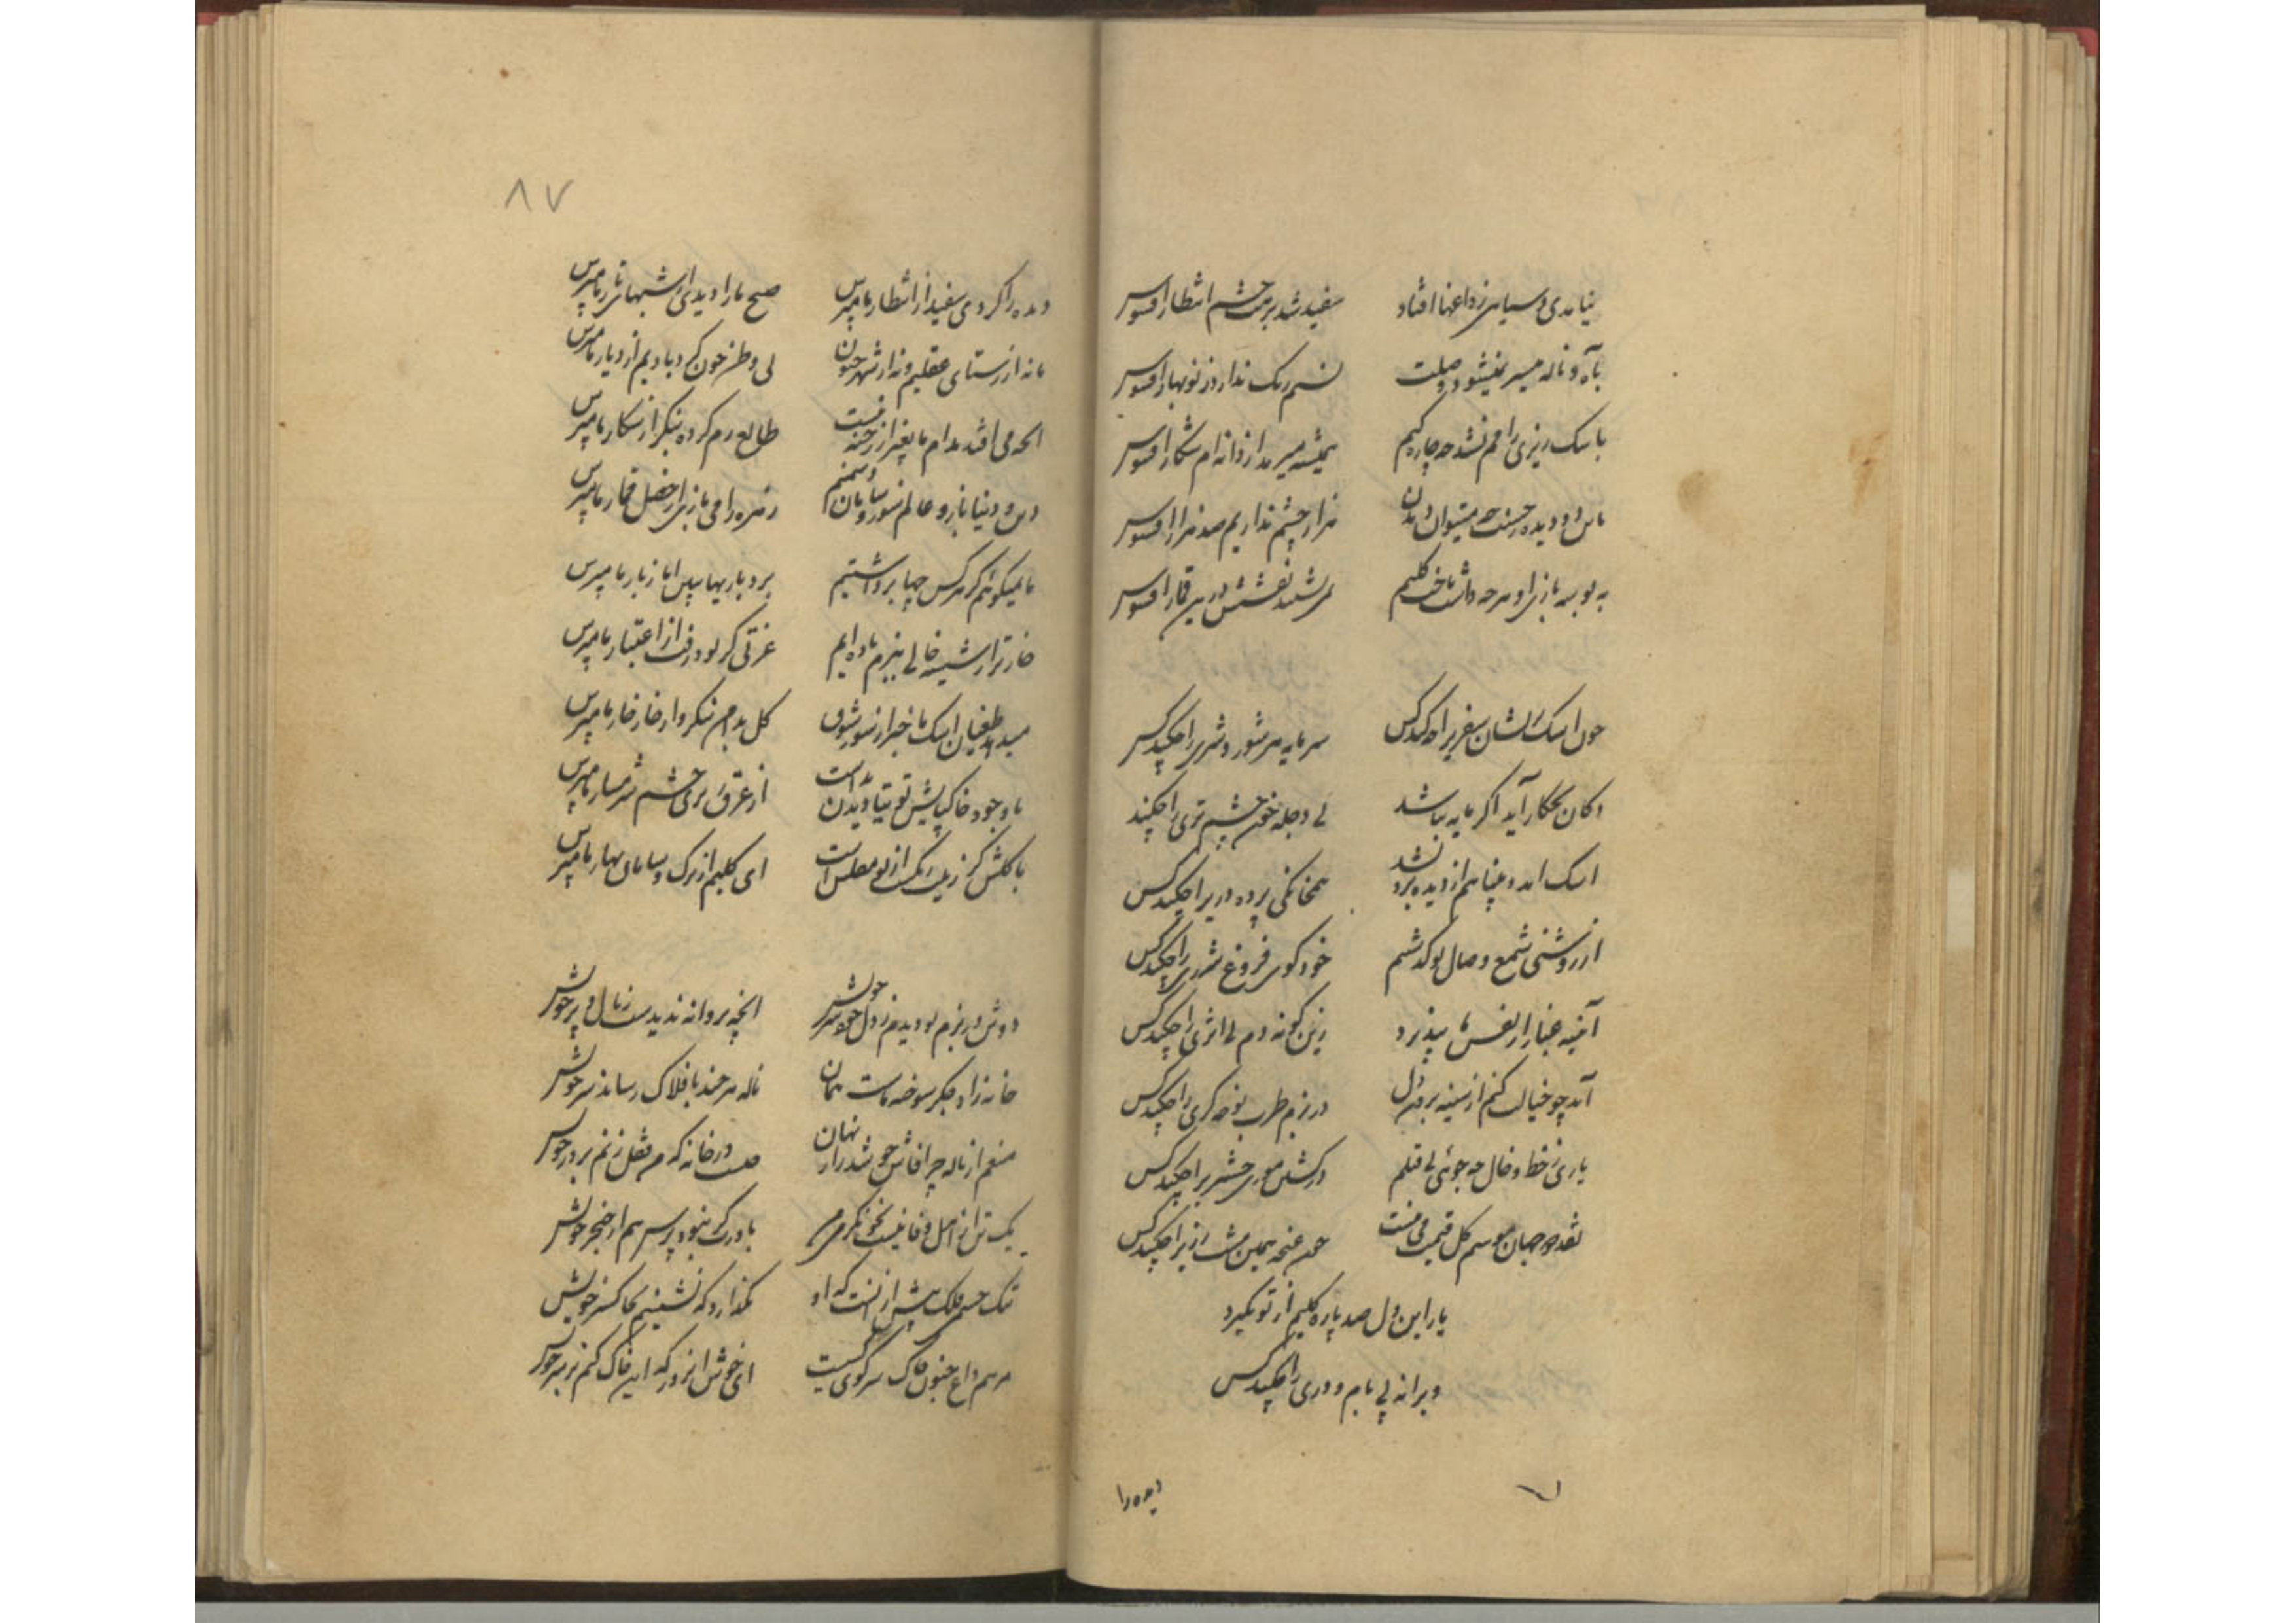 نیامدی و سیاهی ز داغها افتاد سفید شد برهت چشم انتظار افسوس
بآه و ناله میسر نمیشود وصلت نسیم رنگ ندارد ز نوبهار افسوس
باشک ریزی ما رحم نشد چه چاره کنیم همیشه میرمد از دانه ام شکار افسوس
باین دو دیده حسنت چه میتوان دیدن هزار چشم نداریم صد هزار افسوس
به بوسه بازی او هر چه داشت باخت کلیم نقشش درین قمار افسوس
چون اشک نشان سفری را چکند کس سرمایه هر شور و شری را چکند کس
دکان بچکار آید اگر مایه نباشد بی دجله خون چشم تری را چکند
اشک آمد و بینائیم از دیده بدر شد همخانگی پرده دری را چکند کس
از روشنی شمع وصال تو گذشتم خودگوی فروغ شرری را چکند کس
آئینه غبار از نفس ما نپذیرد زین گونه دم بی اثری را چکند کس
آید چو خیالت کنم از سینه بدر دل در بزم طرب نوحه گری را چکند کس
یاری ز خط و خال چه جوئی پی قتلم در کشتن موری حشری را چکند کس
نقد دو جهان موسم گل قیمت می نیست چون غنچه همین مشت زری را چکند کس
یار این دل صد پاره کلیم از تو نگیرد
ویرانه بی بام و دری را چکند کس
دیده را
۸۷
دیده را کردی سفید از انتظار ما مپرس صبح ما را دیدی از شبهای تار ما مپرس
ما نه از رستای عقلیم و نه از شهر جنون بی وطن چون گردبادیم از دیار ما مپرس
آنچه می افتد بدام ما بغیر از رخنه نیست طالع رم کرده بنگر از شکار ما مپرس
دین و دنیا باز و عالم سوز و سامان دشمنیم هرزه را می بازی از خصل قمار ما مپرس
ما نمیگوئیم کز هر کس چها برداشتیم بردباریها ببین اما ز بار ما مپرس
خارتر از شیشه خالی ببزم باده ایم عزتی گر بود رفت از اعتبار ما مپرس
میدهد طغیان اشک ما خبر از شور شوق گل بدامن بنگر و از خار خار ما مپرس
با وجود خاکپایش توتیا دیدن بد است از عرق پرس چشم شرمسار ما مپرس
با گلش کز زیب رنگ از بو مفلس است ای کلیم از برگ و سامان بهار ما مپرس
دوش در بزم تو دیدم ز دل خویش آنچه پروانه ندیدست ز بال و پر خویش
خانه زاد جگر سوخته ماست همان ناله هر چند بافلاک رساند سر خویش
منعم از ناله چرا فاش چو شد راز نهان چیست در خانه که من قفل زنم بر در خویش
یک تن از اهل وفا نیست نکو بنگر باورت گر نبود پرس هم از خنجر خویش
تنگ چشمی فلک بیش از آنست که او بگذارد که نشینیم بخاکستر خویش
مرهم داغ جنون خاک سر کوی کسیست ای خوش آنروز که این خاک کنم بر سر خویش